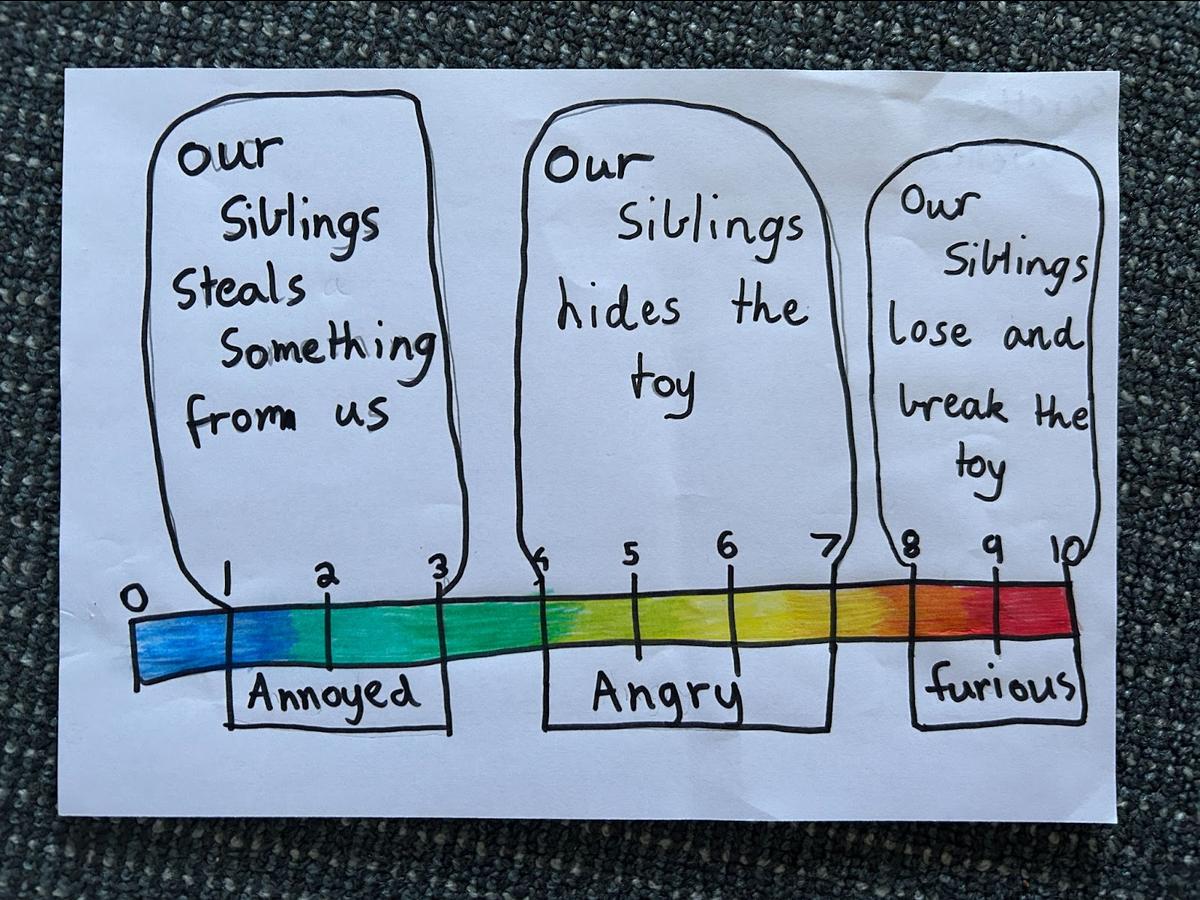 our
Siblings
Steals
Something
from us
Our
Siblings
hides the
toy
Our
Siblings
lose and
break the
toy
0 1 2 3 4 5 6 7 8 9 10
Annoyed
Angry
furious